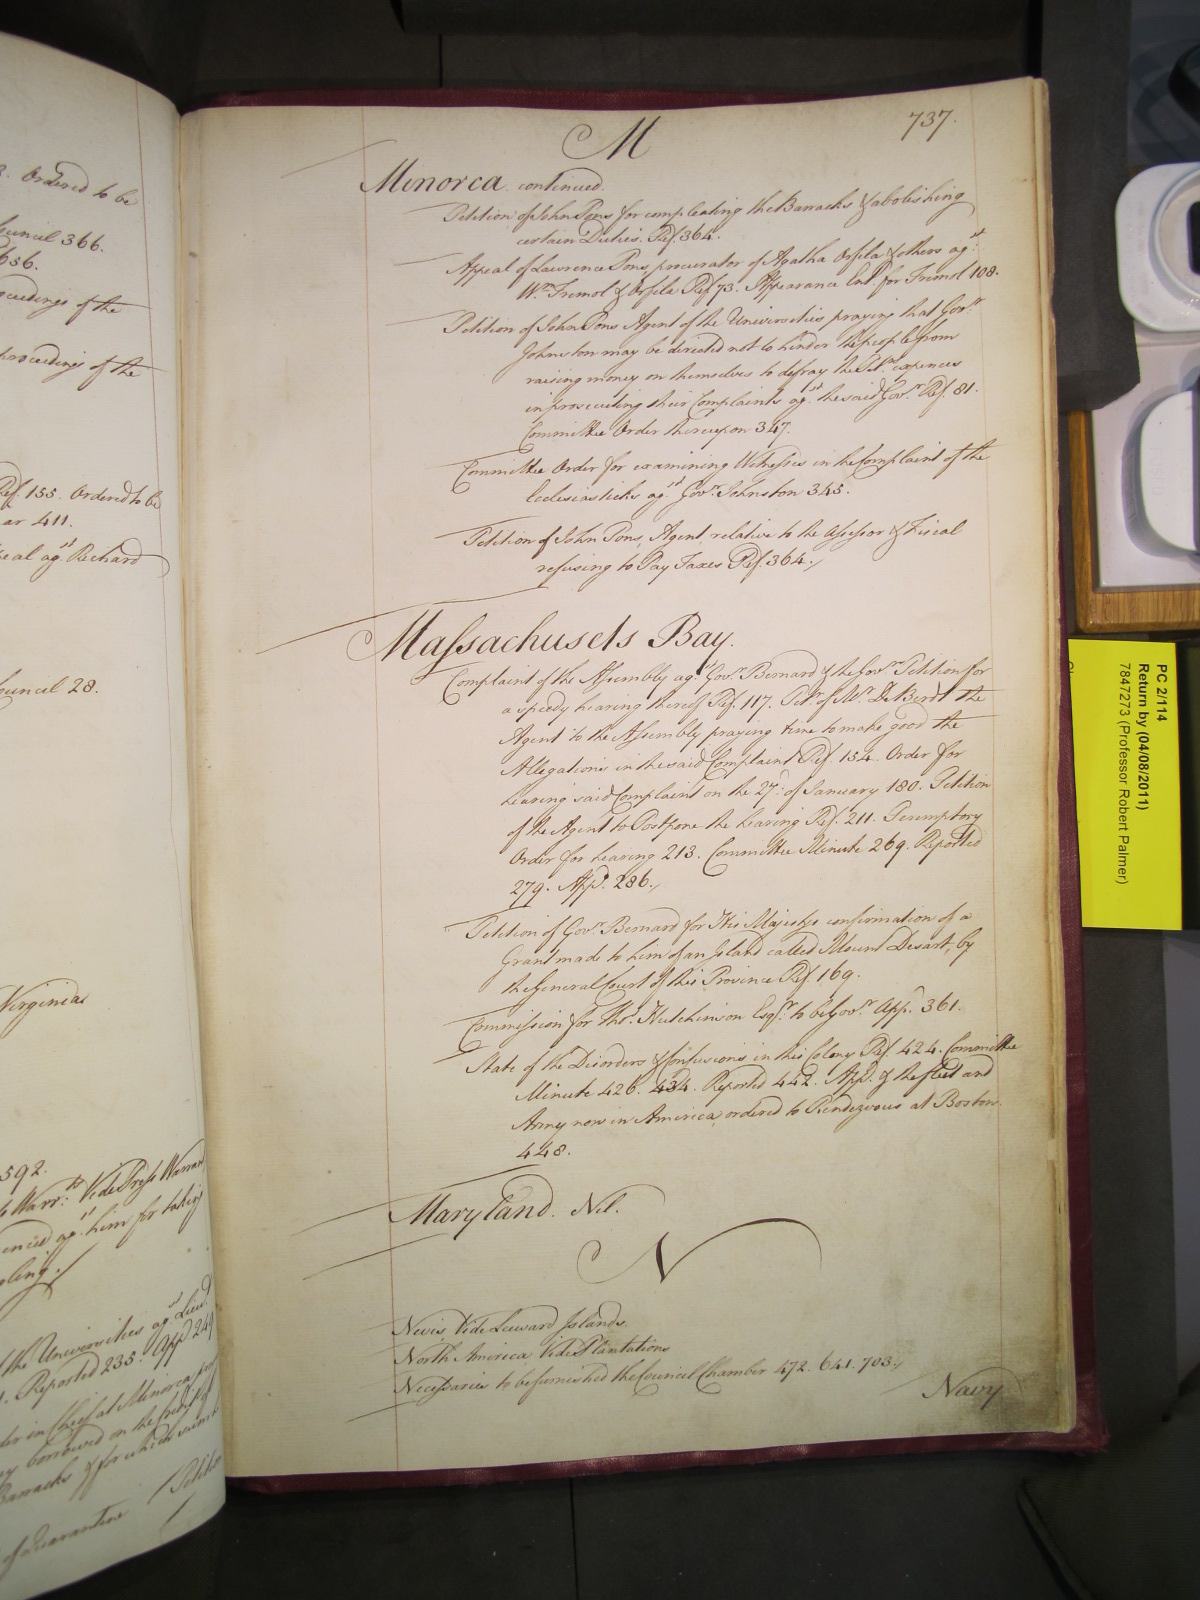 3. Ordered to be
Council 366.
656.
proceedings of the
proceedings of the
Ref. 155. Ordered to be
ar 411.
eal ag.st Richard
Council 28.
Virginia
592.
Warr.ts Vide Press Warran
ag.st him for taking
the Universities ag.st Lieu.t
Reported 235. App.d 249
in Chief at Minorca
borrowed on the Credit of
Barracks & for which
of Quarantine
737.
M
Minorca continued.
Petition of John Pons for compleating the Barracks & abolishing
certain Duties. Ref. 364.
Appeal of Lawrence Pons, procurator of Agatha Orfila & others ag.st
W.m Fremol & Orfila Ref 73. Appearance Ent.d for Fremol 108.
Petition of John Pons Agent of the Universities praying that Gov.r
Johnston may be directed not to hinder the people from
raising money on themselves to defray the Pet.rs expences
in prosecuting their Complaints ag.st the said Gov.r Ref. 81.
Committee Order thereupon 347.
Committee Order for examining Witnesses in the Complaint of the
Ecclesiasticks ag.st Gov.r Johnston 345.
Petition of John Pons, Agent, relative to the Assessor & Fiscal
refusing to Pay Taxes Ref. 364.
Massachusets Bay.
Complaint of the Assembly ag.st Gov.r Bernard & the Gov.rs Petition for
a speedy hearing thereof Ref. 117. Pet.n of M.r De Berdt the
Agent to the Assembly praying time to make good the
Allegations in the said Complaint Ref. 154. Order for
hearing said Complaint on the 27.th of January 180. Petition
of the Agent to Postpone the hearing Ref. 211. Peremptory
Order for hearing 213. Committee Minute 269. Reported
279. App.d 286.
Petition of Gov.r Bernard for His Majestys confirmation of a
Grant made to him of an Island called Mount Desart, by
the General Court of this Province Ref. 169.
Commission for Tho.s Hutchinson Esq.r to be Gov.r App.d 361.
State of the Disorders & Confusions in this Colony Ref. 424. Committee
Minute 426. 434. Reported 442. App.d & the fleet and
Army now in America, ordered to Rendezvous at Boston.
448.
Maryland. Nil.
N
Nevis, Vide Leeward Islands.
North America Vide Plantations
Necessaries to be furnished the Council Chamber 472. 641. 703.
Navy
PC 2/114
Return by (04/08/2011)
7847273 (Professor Robert Palmer)